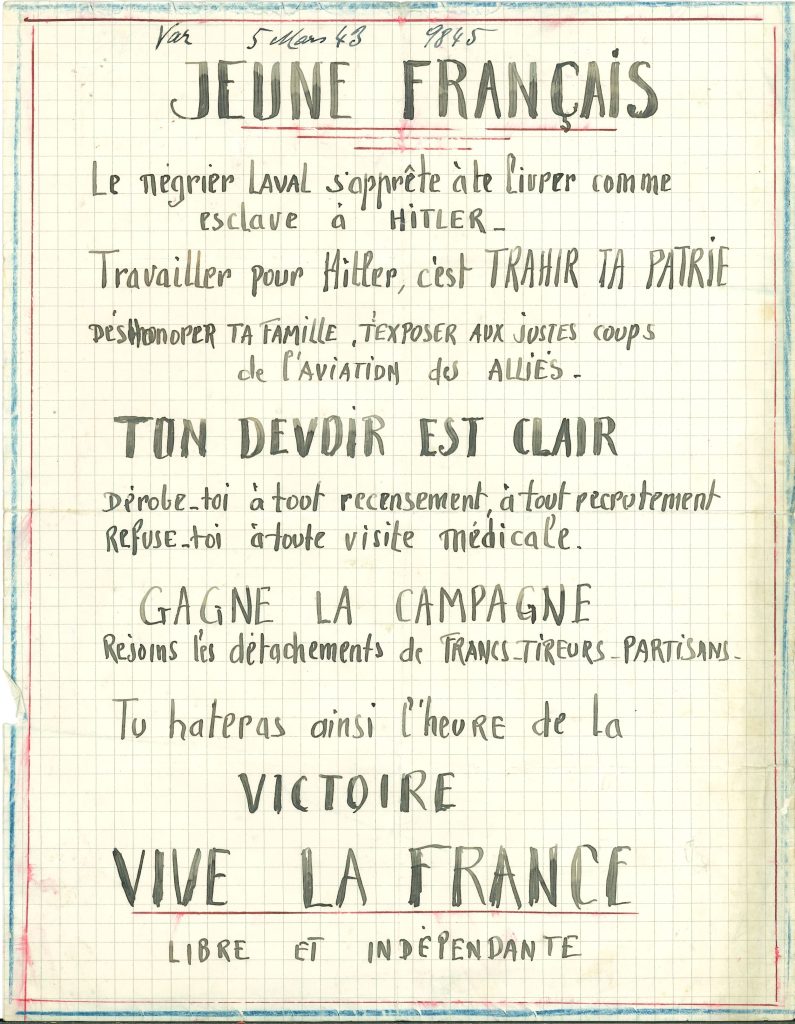 Var 5 Mars 43 9845
JEUNE FRANÇAIS
Le négrier LAVAL s'apprête à te livrer comme
esclave à HITLER_
Travailler pour Hitler, c'est TRAHIR TA PATRIE
DÉSHONORER TA FAMILLE, T'EXPOSER AUX JUSTES COUPS
de l'AVIATION des ALLIÉS_
TON DEVOIR EST CLAIR
Dérobe-toi à tout recensement, à tout recrutement
REFUSE-toi à toute visite médicale.
GAGNE LA CAMPAGNE
Rejoins les détachements de FRANCS-TIREURS-PARTISANS_
Tu hateras ainsi l'heure de la
VICTOIRE
VIVE LA FRANCE
LIBRE ET INDÉPENDANTE